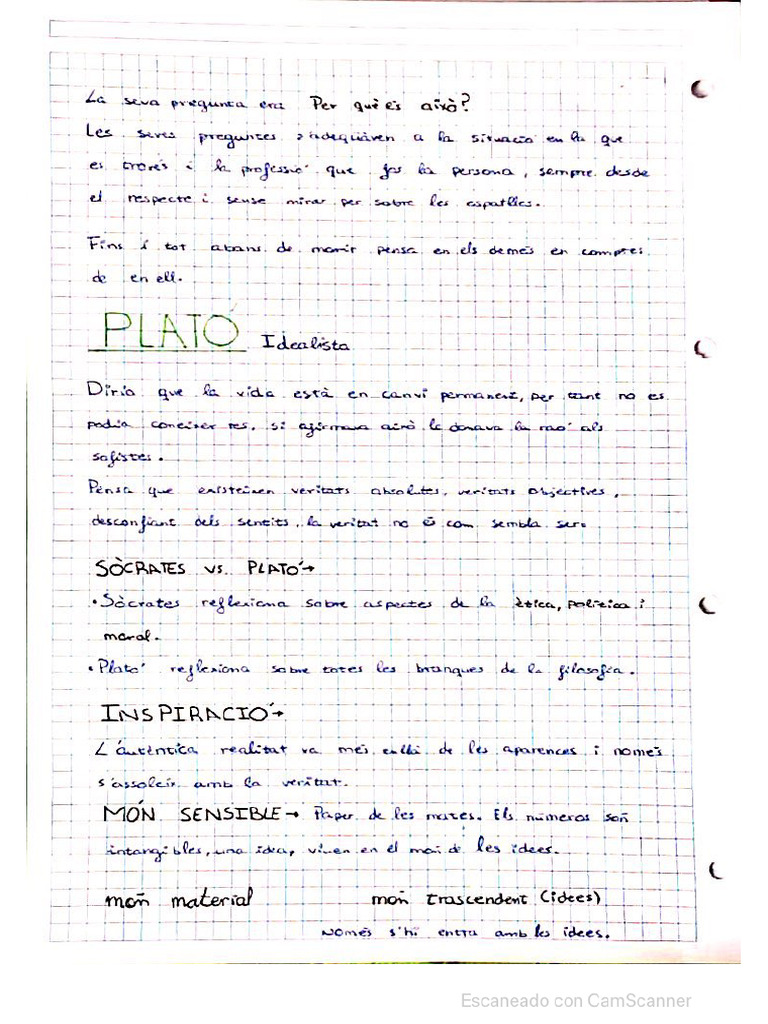 La seva pregunta era Per què és això?
Les seves preguntes s'adequàven a la situació en la que
es trovés i la professió que fos la persona, sempre desde
el respecte i sense mirar per sobre les espatlles.
Fins i tot abans de morir pensa en els demés en comptes
de en ell.
PLATÓ Idealista
Diria que la vida està en canvi permanent, per tant no es
podia coneixer res, si afirmava això le donava la raó als
sofistes.
Pensa que existeixen veritats absolutes, veritats objectives,
desconfiant dels sentits, la veritat no és com sembla ser.
SÒCRATES vs. PLATÓ→
•Sòcrates reflexiona sobre aspectes de la ètica, política i
moral.
•Plató reflexiona sobre totes les branques de la filosofia.
INSPIRACIÓ→
L'autèntica realitat va més enllà de les aparences i només
s'assoleix amb la veritat.
MÓN SENSIBLE→ Paper de les mates. Els números són
intangibles, una idea, viuen en el món de les idees.
món material món trascendent (idees)
Només s'hi entra amb les idees.
Escaneado con CamScanner